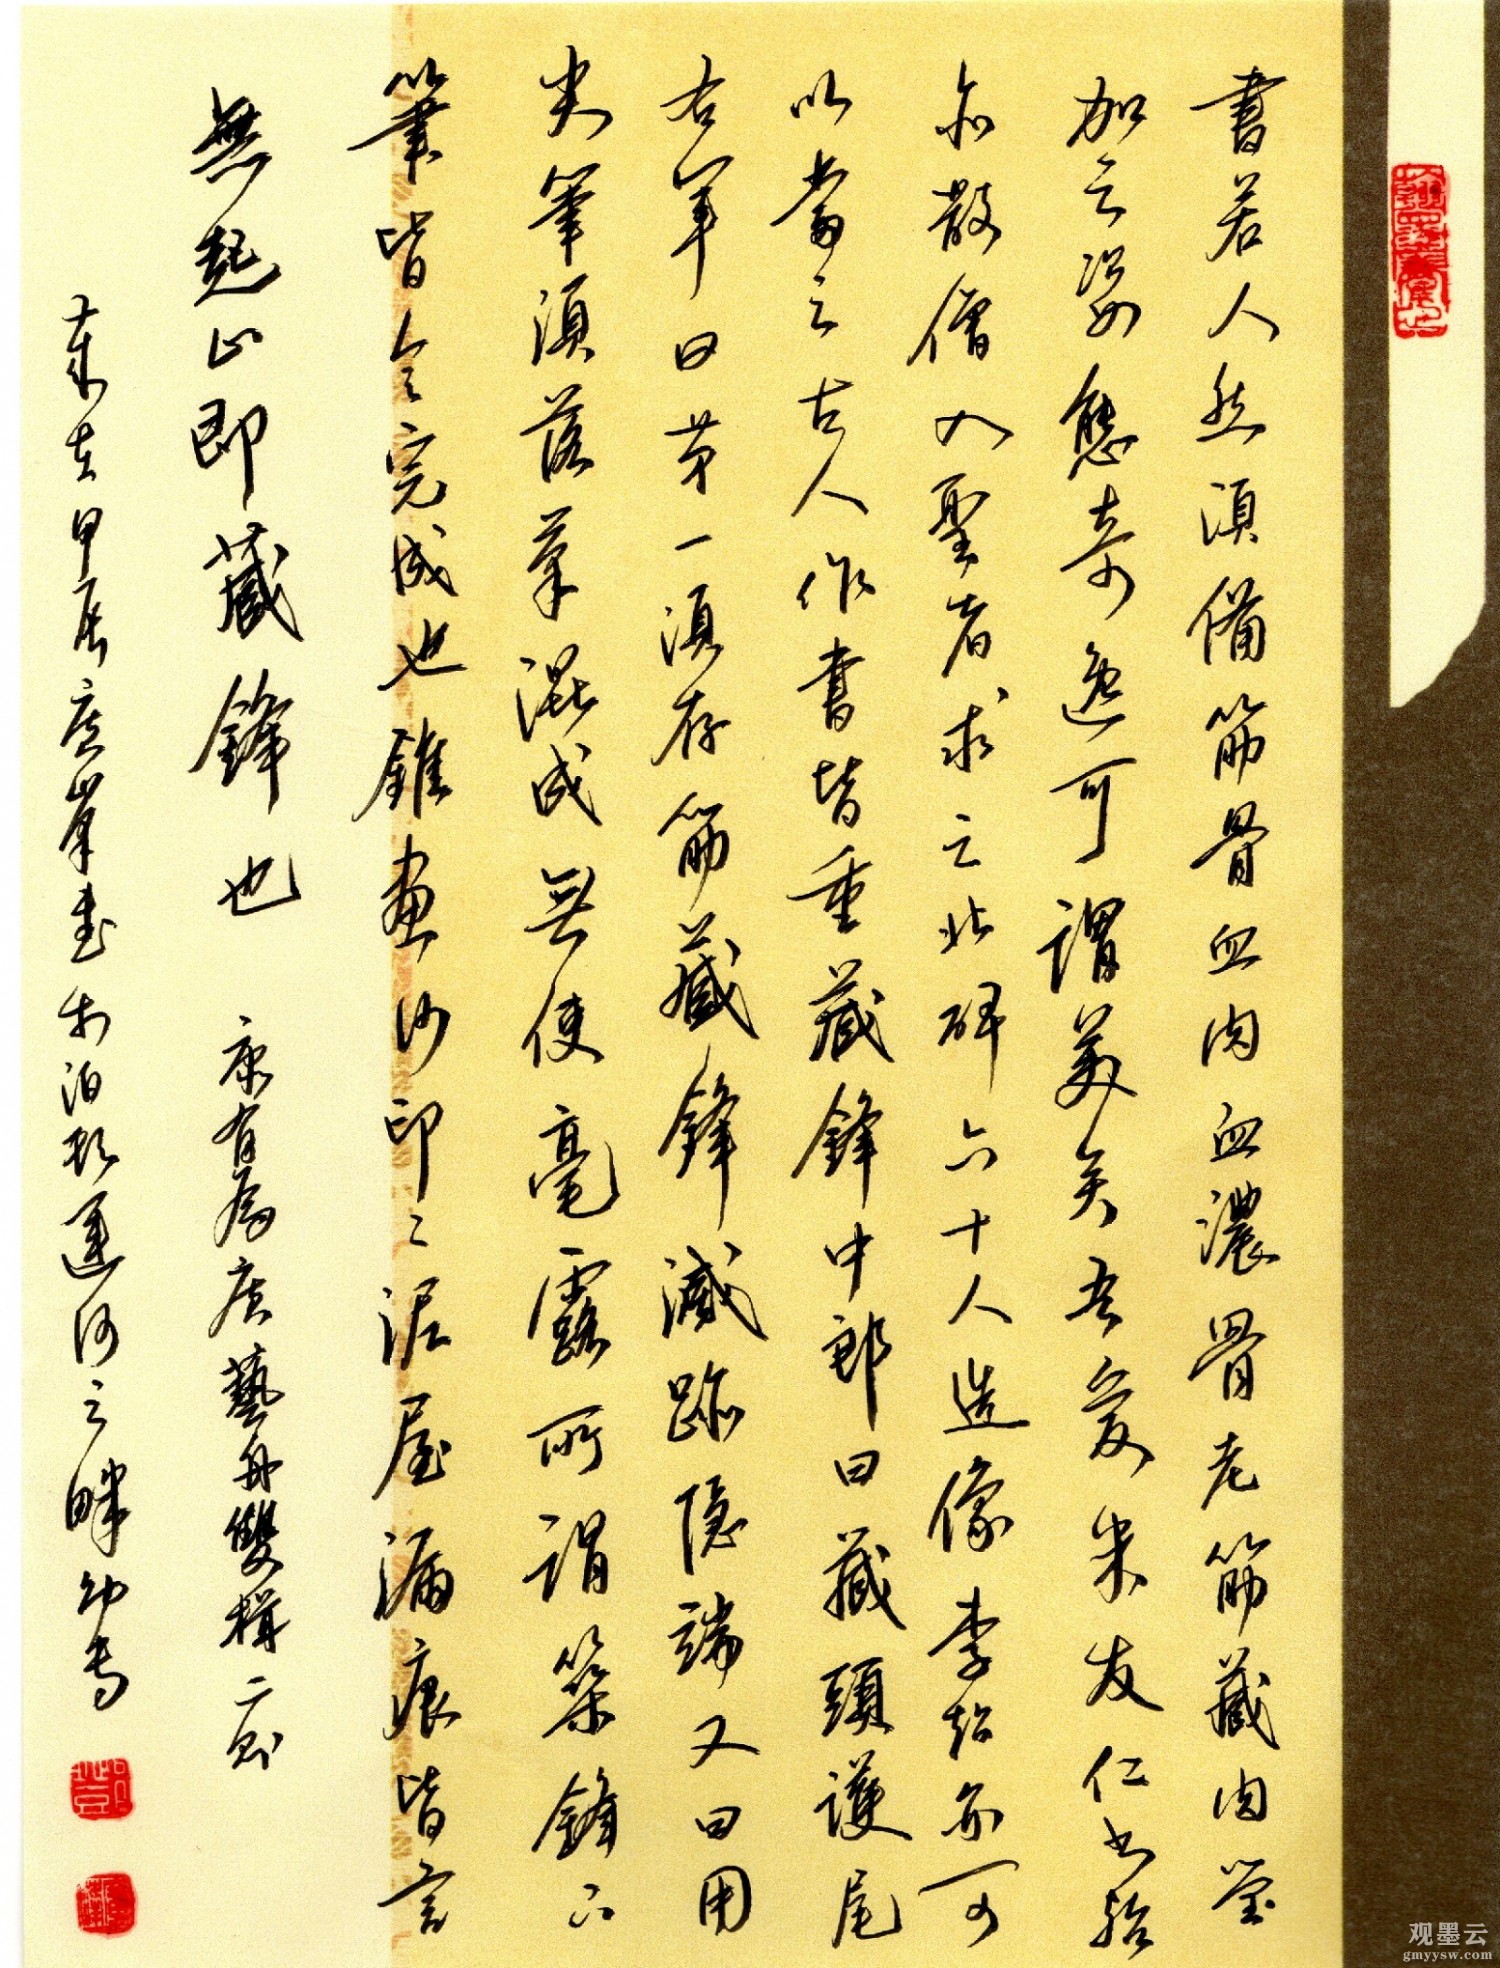 書若人然須備筋骨血肉血濃骨老筋藏肉瑩
加之姿態奇逸可謂美矣吾愛米友仁書殆
亦散僧入聖者求之北碑六十人造像李超亦可
以當之古人作書皆重藏鋒中郎曰藏頭護尾
右軍曰第一須存筋藏鋒滅跡隱端又曰用
尖筆須落筆混成無使毫露所謂築鋒下
筆皆令完成也錐畫沙印〻泥屋漏痕皆言
無起止即藏鋒也 康有為广藝舟雙楫二則
歲在甲辰 書於泊頭運河之畔
观墨云
gmyysw.com